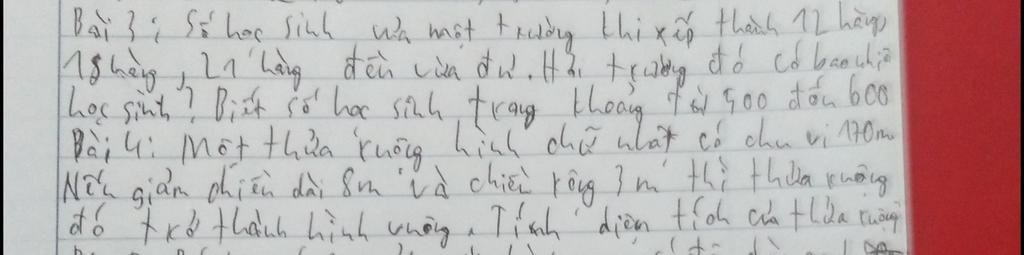 Bài 3: Số học sinh của một trường khi xếp thành 12 hàng,
18 hàng, 21 hàng đều vừa đủ. Hỏi trường đó có bao nhiê
học sinh? Biết số học sinh trong khoảng từ 500 đến 600
Bài 4: Một thửa ruộng hình chữ nhật có chu vi 170m
Nếu giảm chiều dài 8m và chiều rộng 3m thì thửa ruộng
đó trở thành hình vuông. Tính diện tích của thửa ruộng